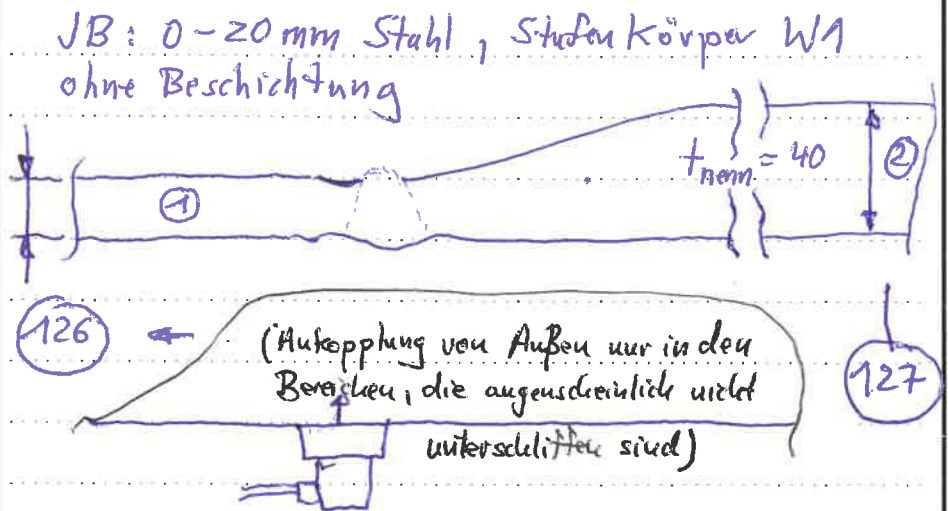 JB: 0-20 mm Stahl, Stufenkörper W1
ohne Beschichtung
t nenn = 40
①
②
126
(Ankopplung von Außen nur in den
Bereichen, die augenscheinlich nicht
unterschliffen sind)
127